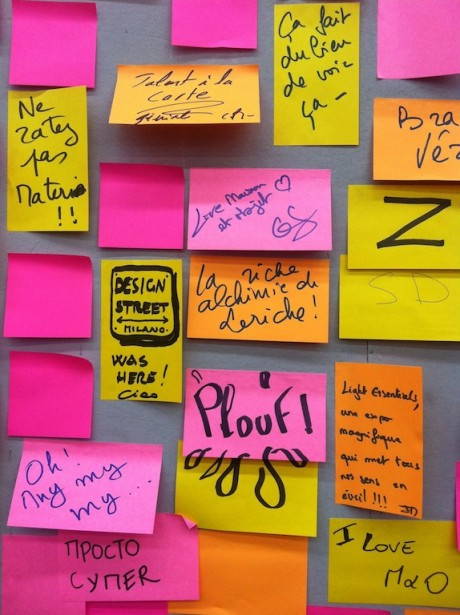 Ça fait
du bien
de voir
ça -
Talent à la
carte
Ne
ratez
pas
Materio
!!
Bra
Véz
Love Maison
et objet ♡
Z
SD
La riche
alchimie de
Leriche !
DESIGN
STREET
MILANO.
WAS
HERE!
Ciao
Plouf!
Light Essentiels,
une expo
magnifique
qui met tous
nos sens en
éveil !!!
Oh!
my my
my...
ПРОСТО
СУПЕR
I LOVE
M&O